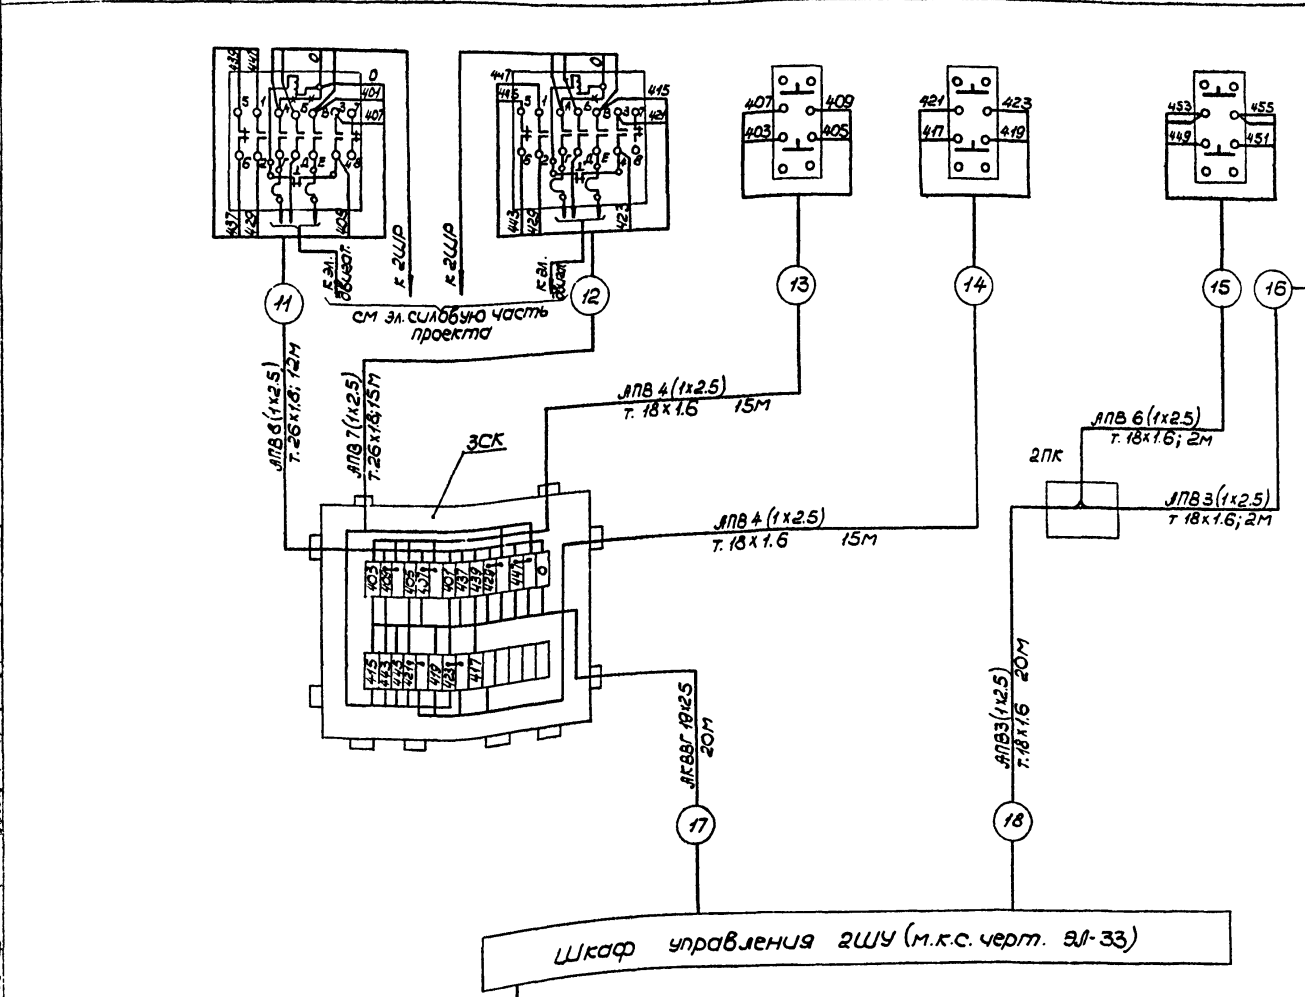 439 441 0
0
401
407
5 1 А Б В 3 7
6 2 Г Д Е 4 8
437 429 409
447 0
445 415
421
5 1 А Б В 3 7
6 2 Г Д Е 4 8
443 429 423
407 409
403 405
421 423
417 419
453 455
449 451
к эл. двигат.
к 2ШР
к 2ШР
к эл. двигат.
11
12
13
14
15
16
см эл. силовую часть
проекта
АПВ 8 (1×2.5)
т. 26×1.8; 12м
АПВ 7 (1×2.5)
т. 26×1.8; 15м
АПВ 4 (1×2.5)
т. 18×1.6 15м
АПВ 6 (1×2.5)
т. 18×1.6; 2м
3СК
2ПК
АПВ 4 (1×2.5)
т. 18×1.6 15м
АПВ 3 (1×2.5)
т 18×1.6; 2м
403 409 405 407 437 439 429 447 0
415 443 445 421 419 423 417
АКВВГ 19×2.5
20м
АПВ3 (1×2.5)
т. 18×1.6 20м
17
18
Шкаф управления 2ШУ (м.к.с. черт. ЭЛ-33)